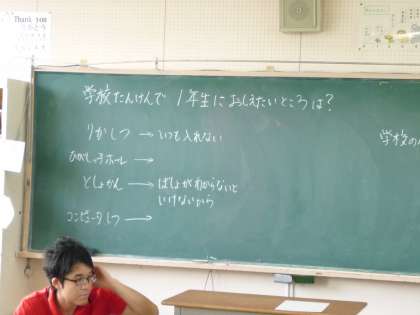 Thank you
学校たんけんで 1年生におしえたいところは?
りかしつ → いつも入れない
ひがしっ子ホール →
としょかん → ばしょがわからないと
いけないから
コンピュータしつ →
学校の